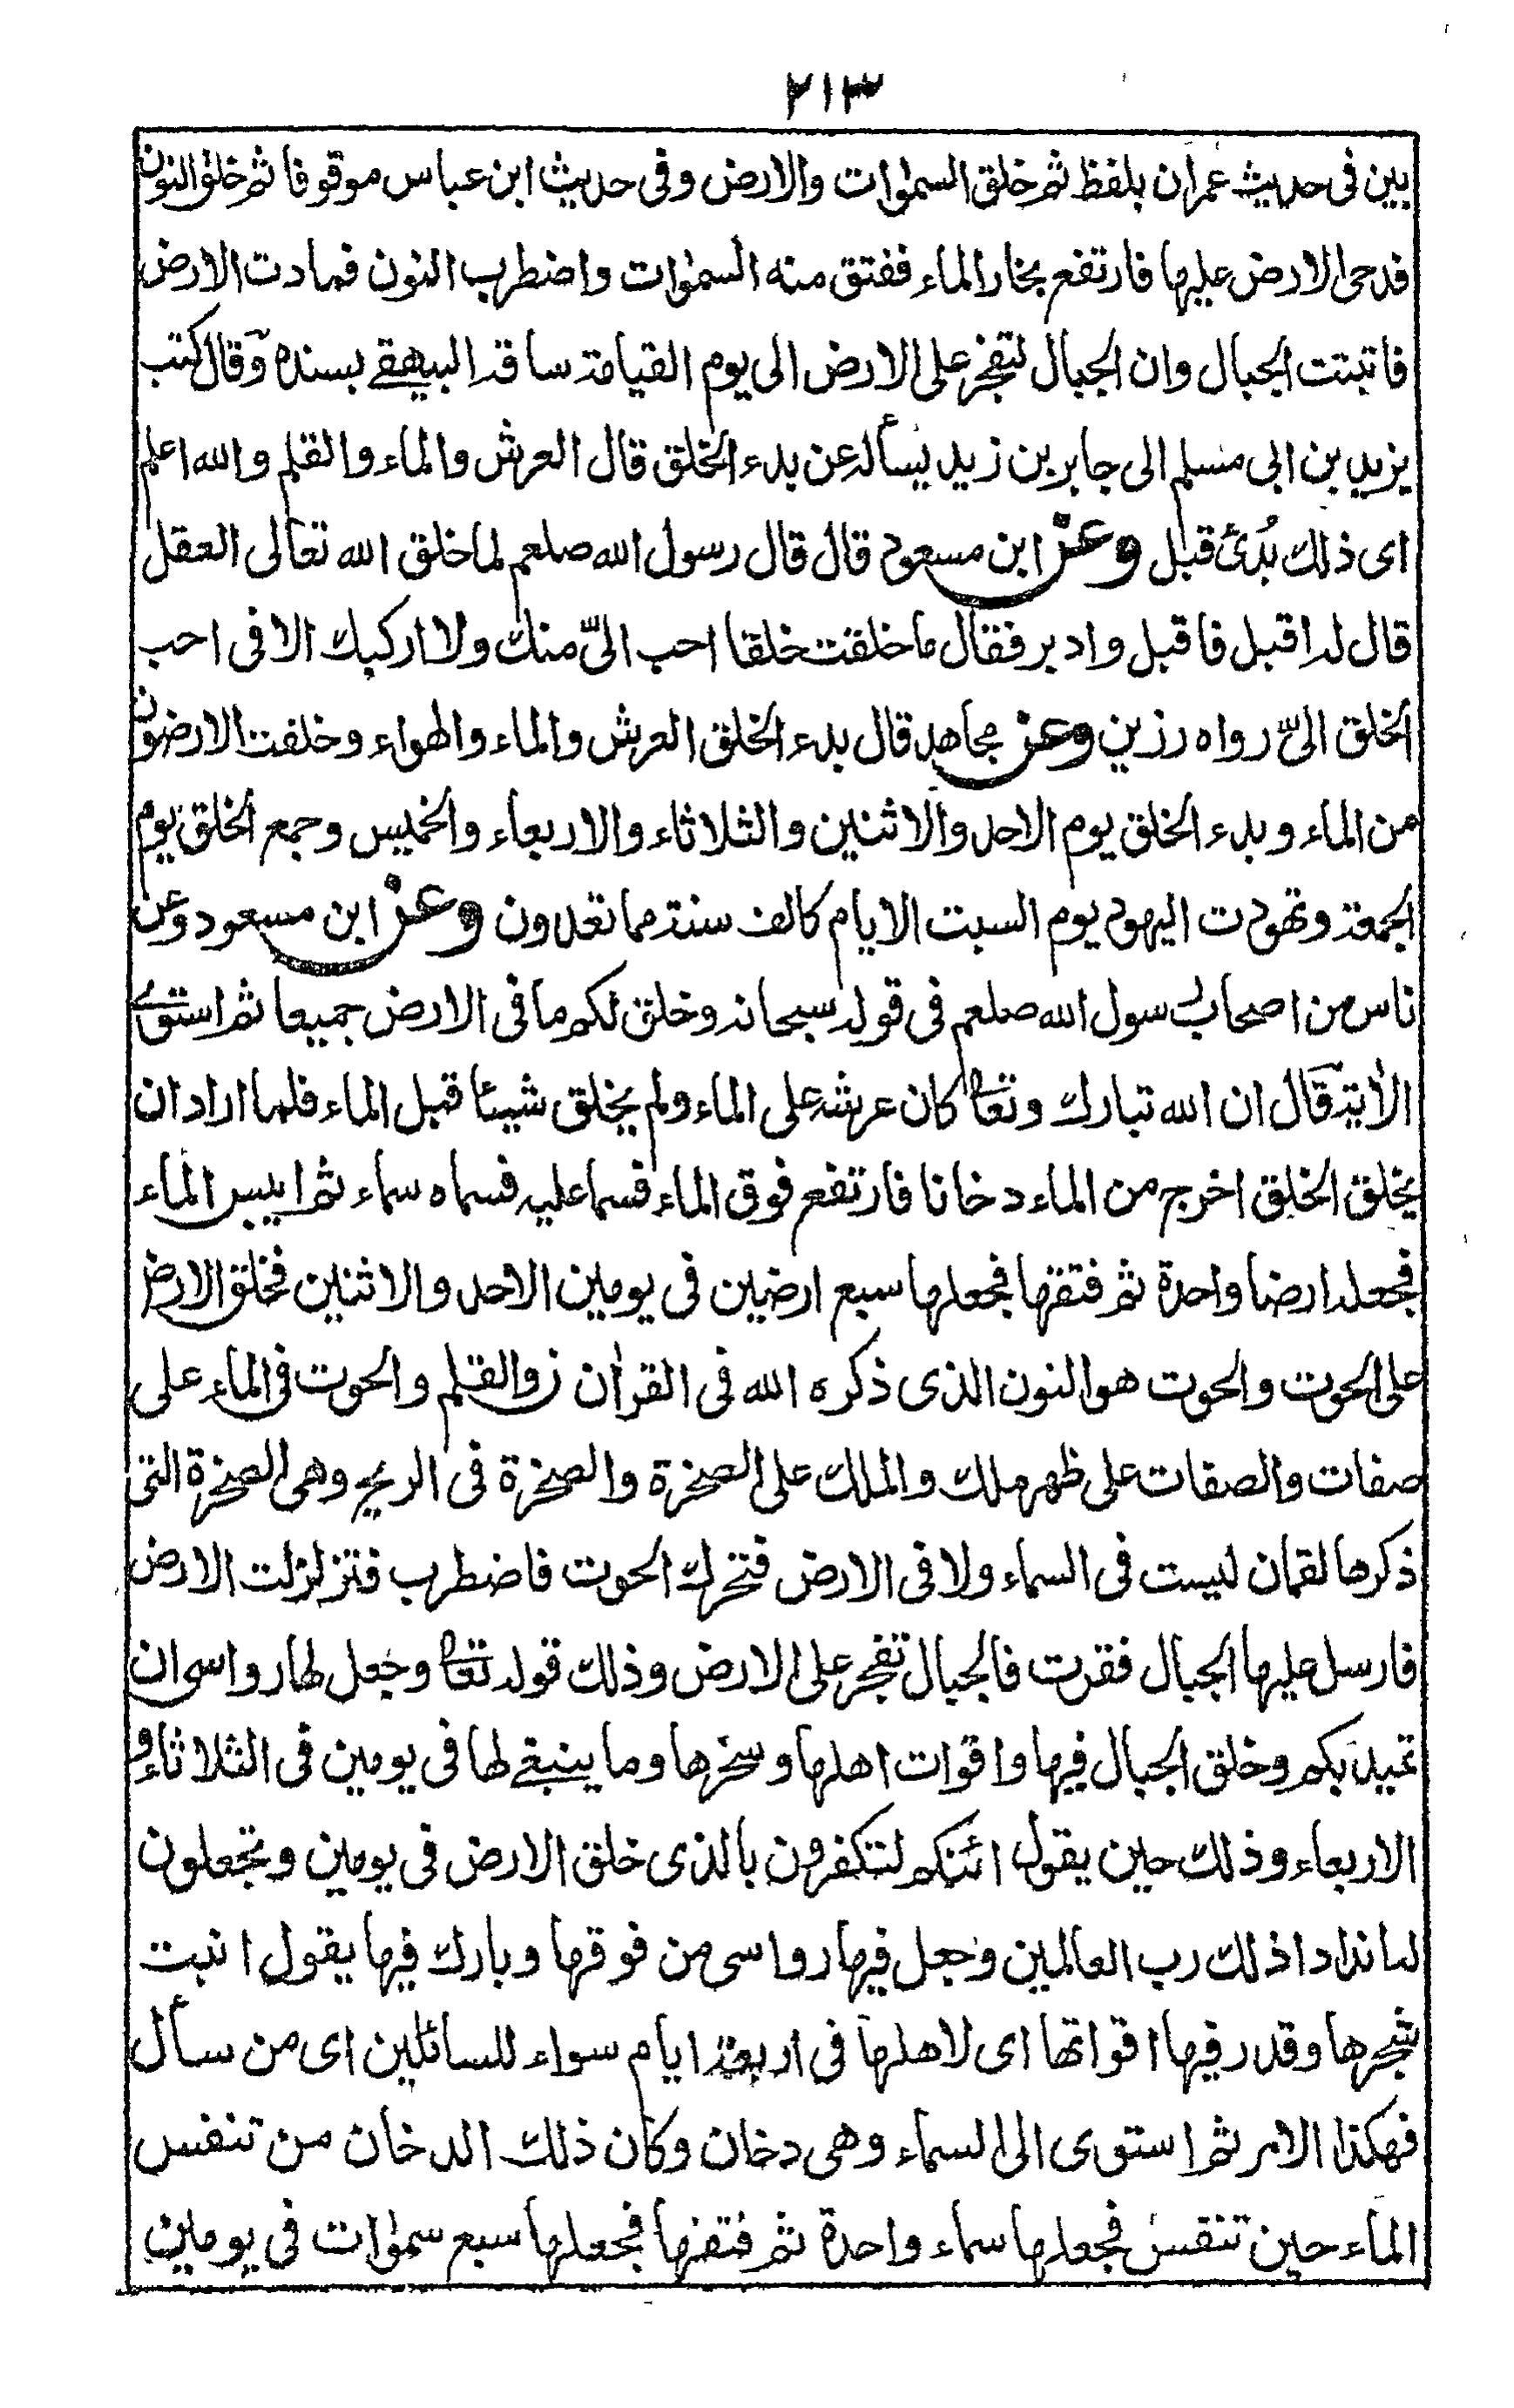 ٢١٣
بين فى حديث عمران بلفظ ثم خلق السمٰوات والارض وفى حديث ابن عباس موقوفا ثم خلق النون
فدحى الارض عليها فارتفع بخار الماء ففتق منه السمٰوات واضطرب النون فمادت الارض
فاثبتت الجبال وان الجبال لتفخر على الارض الى يوم القيامة ساقه البيهقے بسنده وقال كتب
يزيد بن ابى مسلم الى جابر بن زيد يسأله عن بدء الخلق قال العرش والماء والقلم والله اعلم
اى ذلك بُدئ قبل وعن ابن مسعود قال قال رسول الله صلعم لما خلق الله تعالى العقل
قال له اقبل فاقبل وادبر فقال ما خلقت خلقا احب الىّ منك ولا اركبك الا فى احب
الخلق الىّ رواه رزين وعن مجاهد قال بدء الخلق العرش والماء والهواء وخلقت الارضون
من الماء وبدء الخلق يوم الاحد والاثنين والثلاثاء والاربعاء والخميس وجمع الخلق يوم
الجمعة وتهودت اليهود يوم السبت الايام كالف سنة مما تعدون وعن ابن مسعود وعن
ناس من اصحاب رسول الله صلعم فى قوله سبحانه وخلق لكم ما فى الارض جميعا ثم استوٰے
الاٰية قال ان الله تبارك وتعا كان عرشه على الماء ولم يخلق شيئا قبل الماء فلما اراد ان
يخلق الخلق اخرج من الماء دخانا فارتفع فوق الماء فسما عليه فسماه سماء ثم ايبس الماء
فجعله ارضا واحدة ثم فتقها فجعلها سبع ارضين فى يومين الاحد والاثنين فخلق الارض
على الحوت والحوت هو النون الذى ذكره الله فى القراٰن نۤ والقلم والحوت فى الماء على
صفات والصفات على ظهر ملك والملك على الصخرة والصخرة فى الريح وهى الصخرة التى
ذكرها لقمان ليست فى السماء ولا فى الارض فتحرك الحوت فاضطرب فتزلزلت الارض
فارسل عليها الجبال فقرت فالجبال تفخر على الارض وذلك قوله تعا وجعل لها رواسى ان
تميد بكم وخلق الجبال فيها واقوات اهلها وسخرها وما ينبغے لها فى يومين فى الثلاثاء و
الاربعاء وذلك حين يقول ائنكم لتكفرون بالذى خلق الارض فى يومين وتجعلون
له اندادا ذلك رب العالمين وجعل فيها رواسى من فوقها وبارك فيها يقول انبت
شجرها وقدر فيها اقواتها اى لاهلها فى اربعة ايام سواء للسائلين اى من سأل
فهكذا الامر ثم استوى الى السماء وهى دخان وكان ذلك الدخان من تنفس
الماء حين تنفس فجعلها سماء واحدة ثم فتقها فجعلها سبع سمٰوات فى يومين